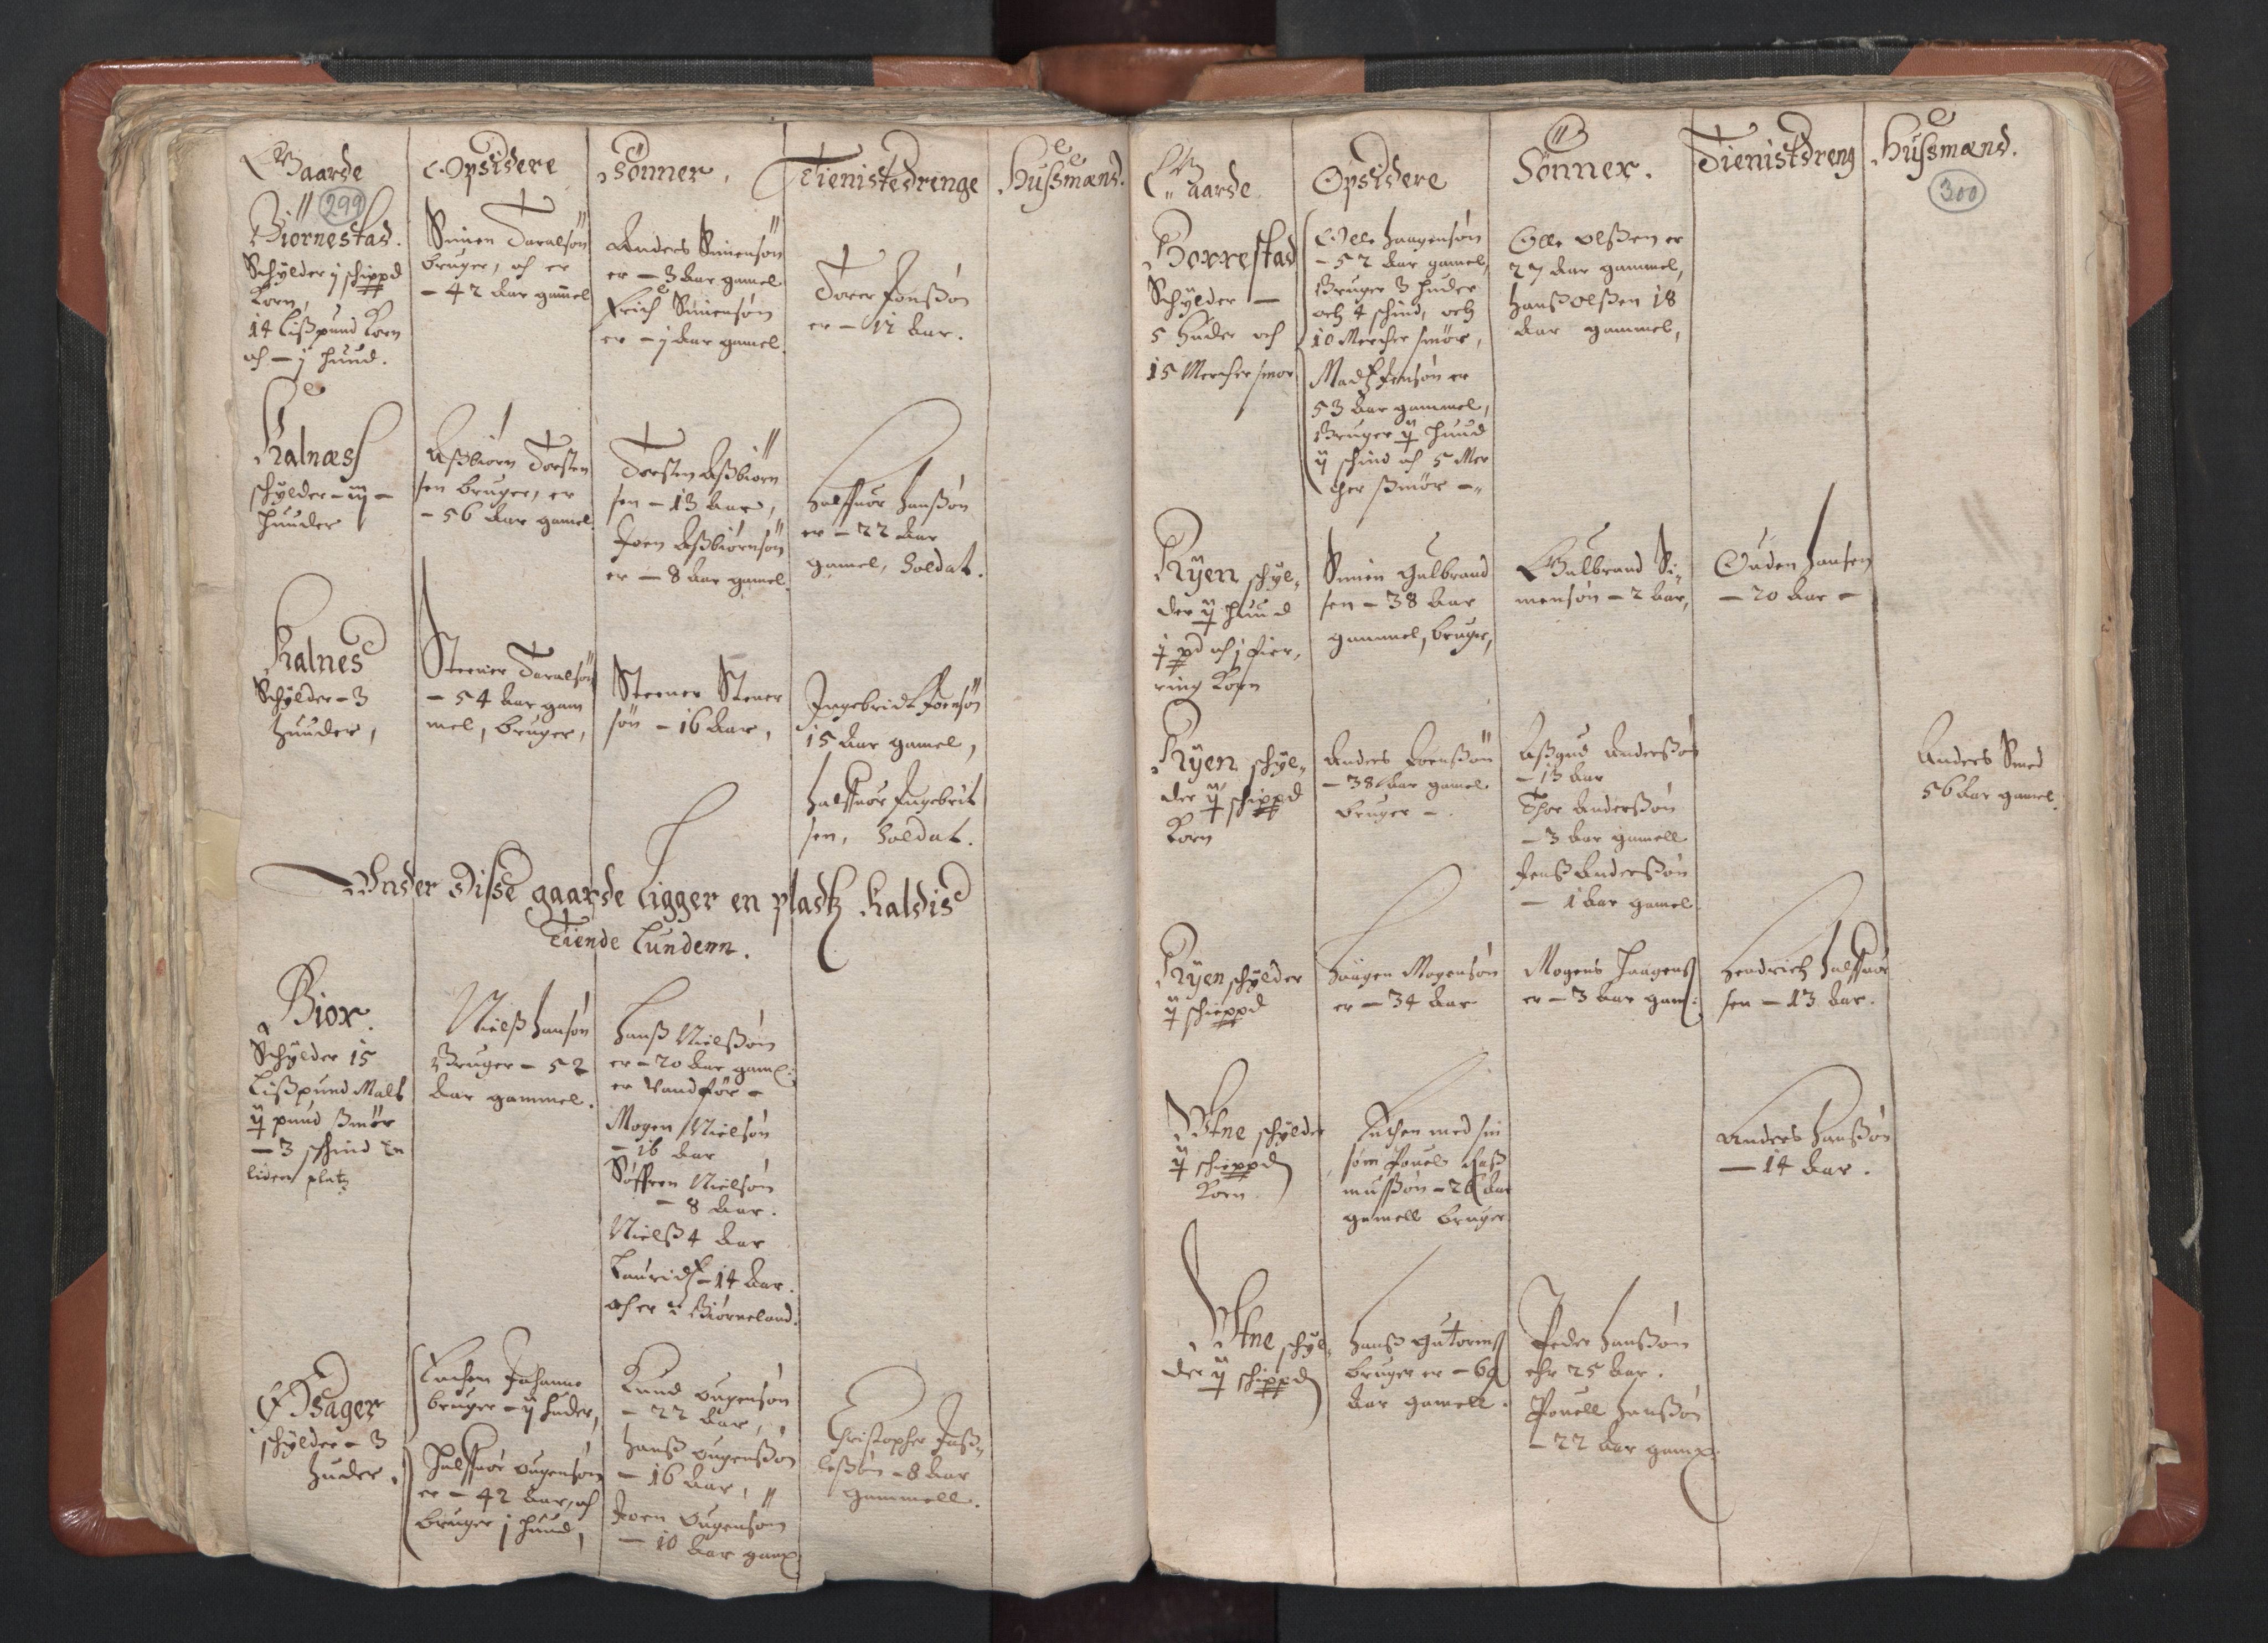 Gaarde
Opsidere
Sönner.
Tienistedrenge
Hußmænd.
299
Biörnestad.
Schylder j schippd
Korn,
14 Lißpund Korn
och – j Huud.
Simen Taralsön
bruger, och er
– 42 Aar gamel
Anders Simensön
er – 3 Aar gamel
Erich Simensön
er – j Aar gamel.
Torer Jonßön
er – 12 Aar.
Kalnæs
schylder – iij –
Huuder
Aßbiörn Torsten
sen bruger, er
– 56 Aar gamel.
Torsten Aßbiörn
sen – 13 Aar,
Joen Aßbiörnsön
er – 8 Aar gamel.
Halffuor Hanßön
er – 22 Aar
gamel, Soldat.
Kalnes
Schylder – 3
Huuder,
Steener Taralsön
– 54 Aar gam
mel, bruger,
Steener Stener
sön – 16 Aar,
Ingebridt Joensön
15 Aar gamel,
Halffuor Ingebrit
sen, Soldat.
Vnder disse gaarde ligger en pladtz kaldis
Tiende Lundenn.
Bior.
Schylder 15
Lißpund Malt
ij pund Smör
– 3 schind En
liden platz
Nielß Hansön
Bruger – 52
Aar gammel.
Hanß Nielßön
er – 20 Aar gaml:
er Vandför –
Mogen Nielsön
– 16 Aar
Söffren Nielsön
– 8 Aar.
Nielß 4 Aar
Lauridz – 14 Aar.
och er i Biörneland.
Odsager
schylder – 3
Huder.
Enchen Johanne
bruger – ij Huder,
Halffuor ougensön
er – 42 Aar, och
bruger j Huud,
Knud ougensön
– 22 Aar,
Hanß ougenßön
– 16 Aar,
Joen ougensön
– 10 Aar gaml
Christopher Jaß-
leßön – 8 Aar
gammell.
Gaarde
Opsidere
Sönner.
Tienistdreng
Hußmænd.
300
Borrestad
Schylder –
5 Huder och
15 Mercker smör
Olle Haagensön
– 52 Aar gamel,
Bruger 3 Huder
och 4 schind, och
10 Mercker smör,
Madtz Jensön er
53 Aar gammel,
Bruger ij Huud
ij schind och 5 Mer
cker ßmör –
Olle olßen er
27 Aar gammel,
Hanß olßen 18
Aar gammel,
Ryen schyl-
der ij Huud
j pd och j fier,
ring Korn
Simen Gulbrand
sen – 38 Aar
gammel, bruger,
Gulbrand Si-
mensön – 2 Aar,
Ouden Hansen
– 20 Aar –
Ryen schyl-
der ij schippd
Korn
Anders Joenßön
– 38 Aar gamel
bruger –.
Aßgud Anderßön
– 13 Aar
Thor Anderßön
– 3 Aar gamell
Jenß Anderßön
– 1 Aar gamel
Anders Smed
56 Aar gamel.
Ryen schylder
ij schippd
Haagen Mogensön
er – 34 Aar
Mogens Haagens
er – 3 Aar gam:
Hendrich Halffuor
sen – 13 Aar.
Vtne schylder
ij schippd
Korn
Enchen med sin
sön Pouel Raß
mußön – 26 Aar
gamell bruger
Anders Hanßön
– 14 Aar.
Vtne schyl-
der ij schippd
Hanß Gutorms
bruger er – 69
Aar gamell.
Peder Hanßön
ehr 25 Aar.
Pouell Hanßön
– 22 Aar gaml.